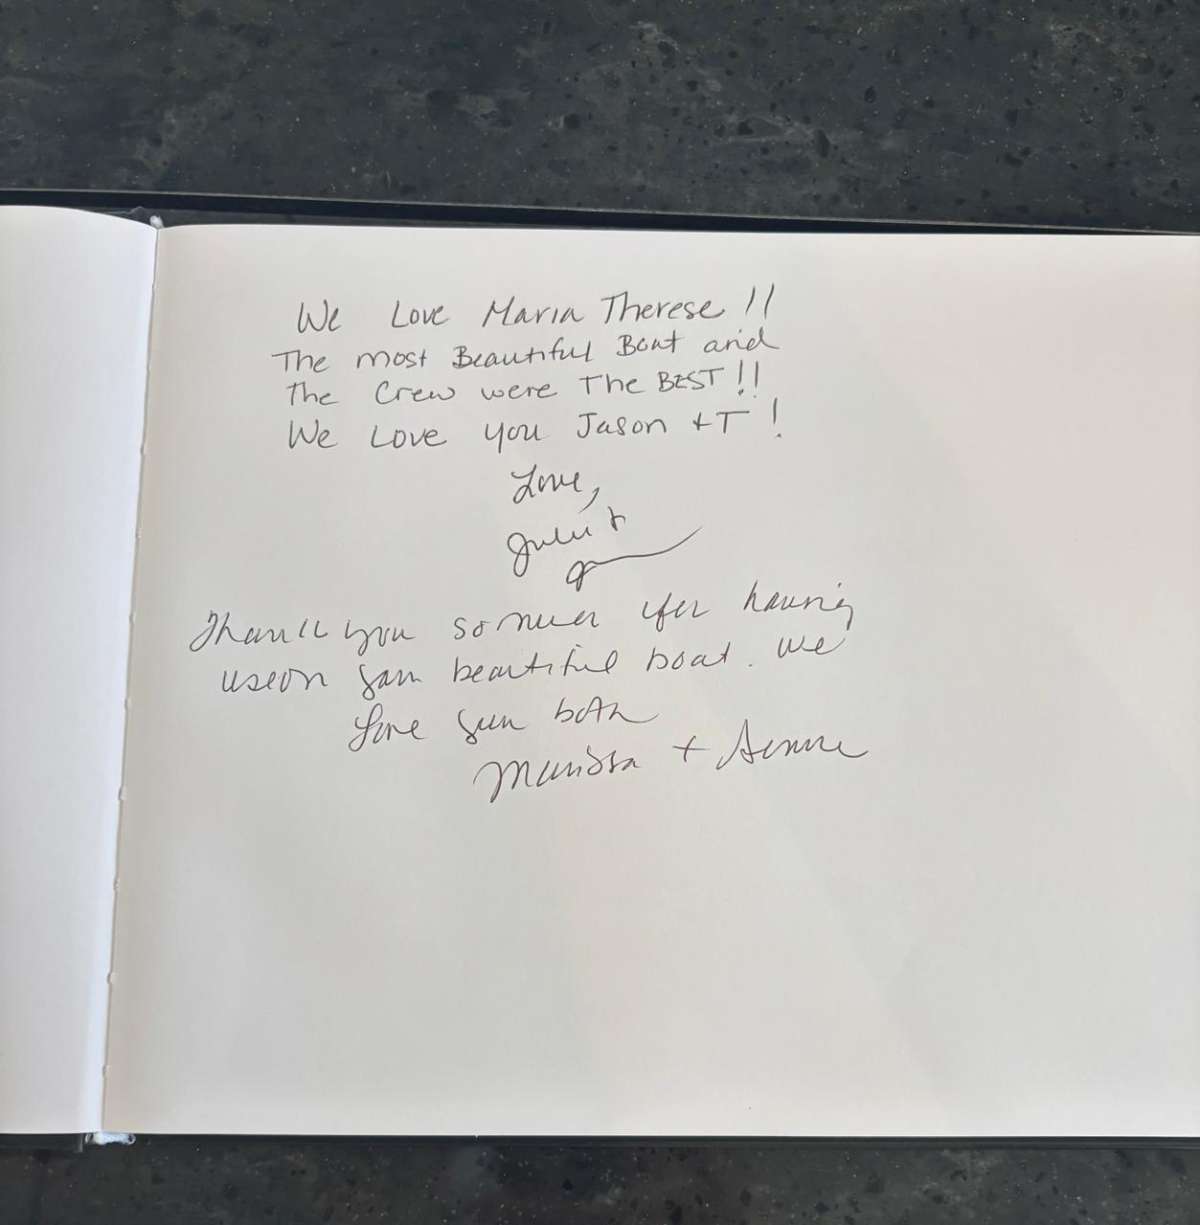 We Love Maria Therese !!
The most Beautiful Boat and
The Crew were The BEST !!
We Love you Jason + T !
Love,
Julie +
Thank you so much for having
us on your beautiful boat. We
Love you both
Marissa +